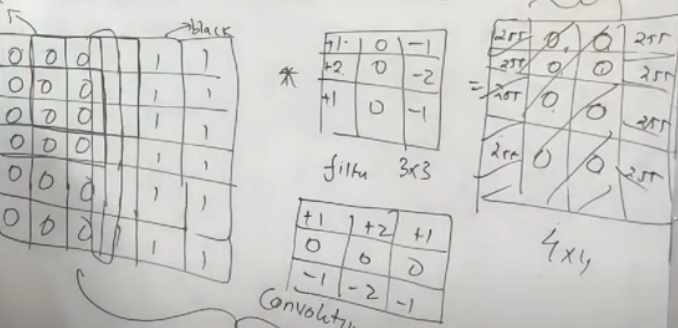 black
0 0 0 1 1 1
0 0 0 1 1 1
0 0 0 1 1 1
0 0 0 1 1 1
0 0 0 1 1 1
0 0 0 1 1 1
*
+1 0 -1
+2 0 -2
+1 0 -1
filtu 3x3
=
255 0 0 255
255 0 0 255
255 0 0 255
255 0 0 255
4x4
+1 +2 +1
0 0 0
-1 -2 -1